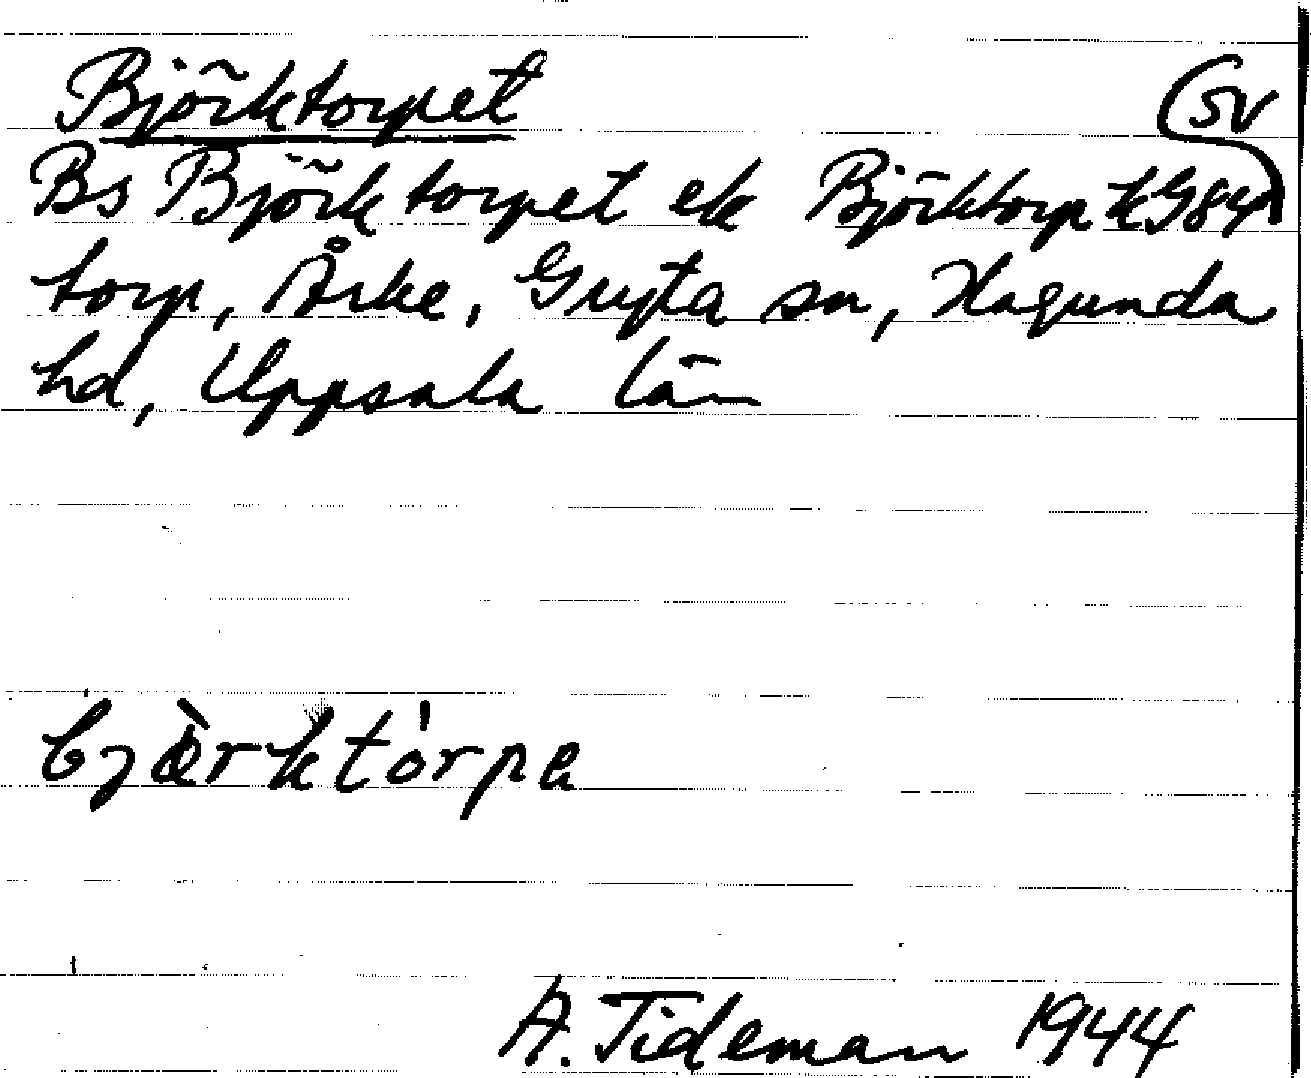 Björktorpet
SV
Bs Björktorpet ek Björktorp k G84
torp, Årke, Gryta sn, Hagunda
hd, Uppsala län
bjæ̀rktórpa
A. Tideman 1944